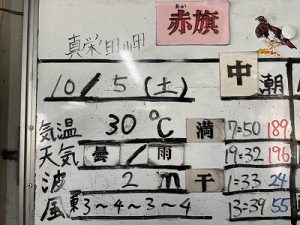 赤旗
あか
真栄田岬
中潮
10/5(土)
気温 30℃ 満 7:50 189
天気 曇/雨 19:32 196
波 2m 干 1:33 24
風 東3~4~3~4 13:39 55